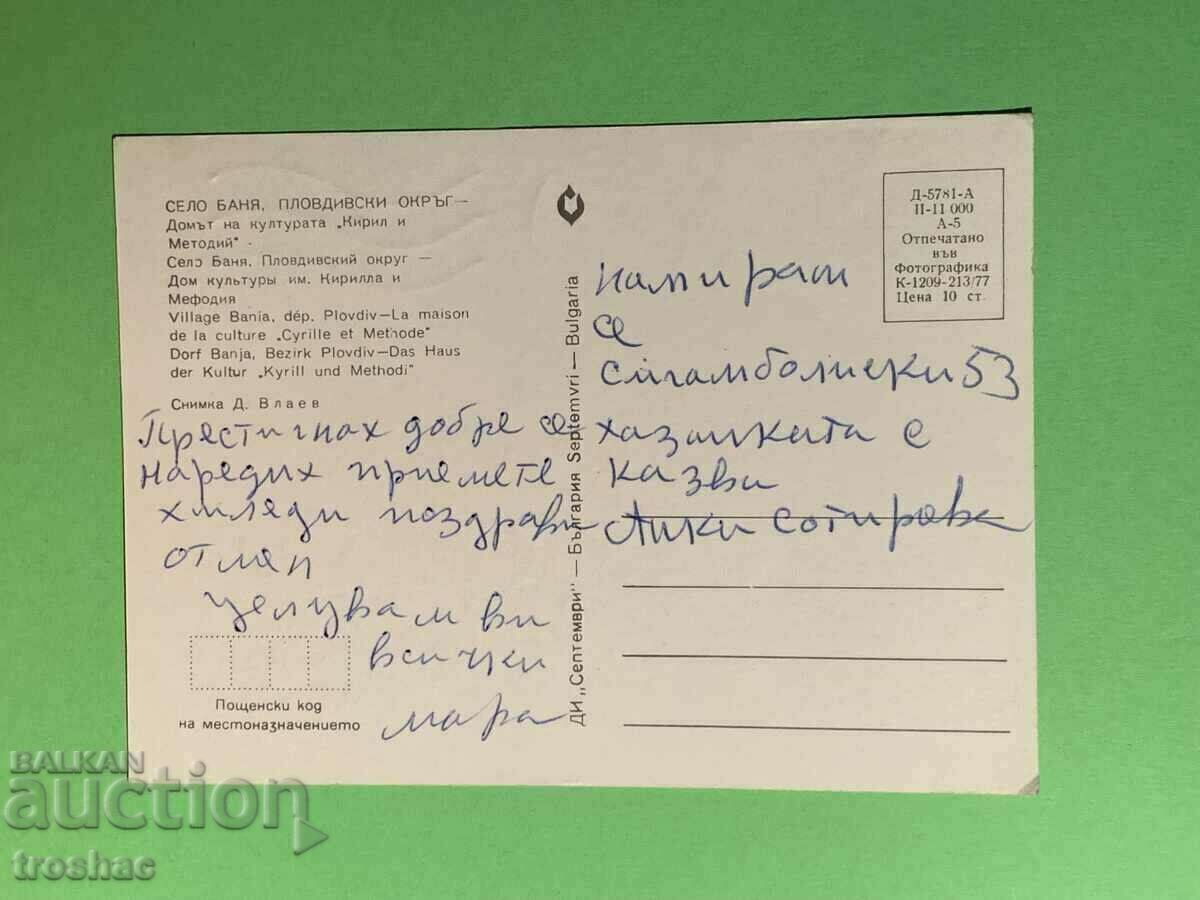 СЕЛО БАНЯ, ПЛОВДИВСКИ ОКРЪГ—
Домът на културата „Кирил и
Методий"
Село Баня, Пловдивский округ —
Дом культуры им. Кирилла и
Мефодия
Village Bania, dép. Plovdiv—La maison
de la culture „Cyrille et Methode"
Dorf Banja, Bezirk Plovdiv—Das Haus
der Kultur „Kyrill und Methodi"
Снимка Д. Влаев
Престигнах добре се
наредих приемете
хиляди поздрави
от мен
целувам ви
всички
мара
Пощенски код
на местоназначението
ДИ „Септември" — България Septemvri — Bulgaria
Д-5781-А
II-11 000
А-5
Отпечатано
във
Фотографика
К-1209-213/77
Цена 10 ст.
намирам
се
Стамболиски 53
хазайката се
казви
Сотирова
BALKAN
auction
troshac